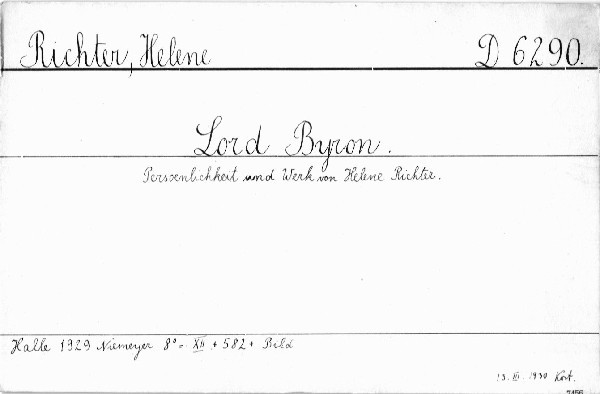 Richter, Helene D 6290.
Lord Byron.
Persoenlichkeit und Werk von Helene Richter.
Halle 1929 Niemeyer 8° = XII + 582 + Bild
13. III. 1930 Kort.